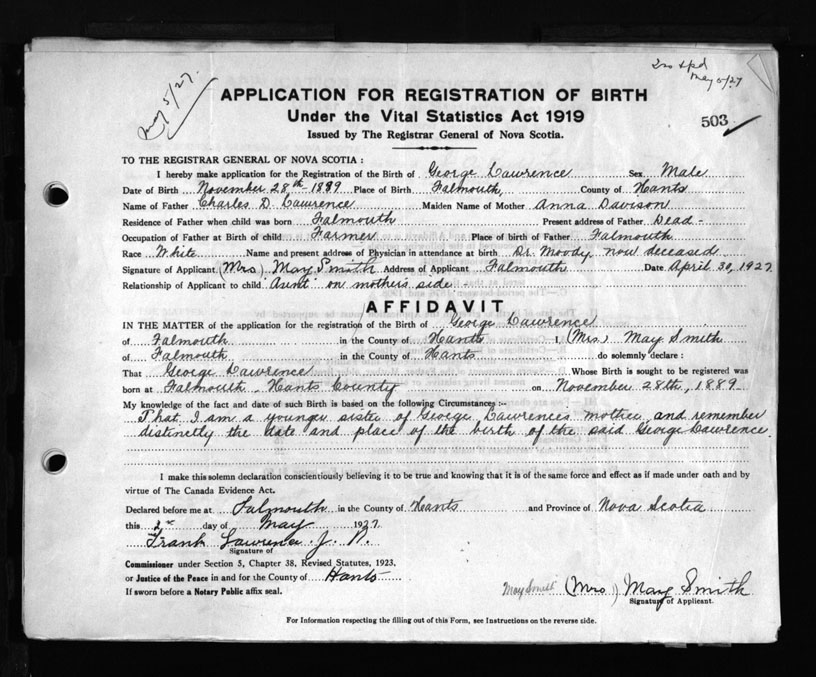 May 5/27.
May 5/27
APPLICATION FOR REGISTRATION OF BIRTH
Under the Vital Statistics Act 1919
503
Issued by The Registrar General of Nova Scotia.
TO THE REGISTRAR GENERAL OF NOVA SCOTIA :
I hereby make application for the Registration of the Birth of George Lawrence Sex Male
Date of Birth November 28th 1889 Place of Birth Falmouth County of Hants
Name of Father Charles D. Lawrence Maiden Name of Mother Anna Davison
Residence of Father when child was born Falmouth Present address of Father Dead -
Occupation of Father at Birth of child Farmer Place of birth of Father Falmouth
Race White Name and present address of Physician in attendance at birth Dr. Moody, now deceased
Signature of Applicant (Mrs) May Smith Address of Applicant Falmouth Date April 30, 1927
Relationship of Applicant to child Aunt on mothers side
AFFIDAVIT
IN THE MATTER of the application for the registration of the Birth of George Lawrence
of Falmouth in the County of Hants I, (Mrs) May Smith
of Falmouth in the County of Hants do solemnly declare :
That George Lawrence Whose Birth is sought to be registered was
born at Falmouth, Hants County on November 28th, 1889
My knowledge of the fact and date of such Birth is based on the following Circumstances :-
That I am a younger sister of George Lawrence's mother, and remember
distinctly the date and place of the birth of the said George Lawrence.
I make this solemn declaration conscientiously believing it to be true and knowing that it is of the same force and effect as if made under oath and by
virtue of The Canada Evidence Act.
Declared before me at Falmouth in the County of Hants and Province of Nova Scotia
this day of May 1927
Frank Lawrence J. P.
Signature of
Commissioner under Section 5, Chapter 38, Revised Statutes, 1923,
or Justice of the Peace in and for the County of Hants
If sworn before a Notary Public affix seal.
May (Mrs) May Smith
Signature of Applicant.
For Information respecting the filling out of this Form, see Instructions on the reverse side.